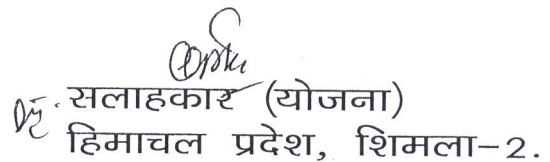 Dy. सलाहकार (योजना)
हिमाचल प्रदेश, शिमला-2.